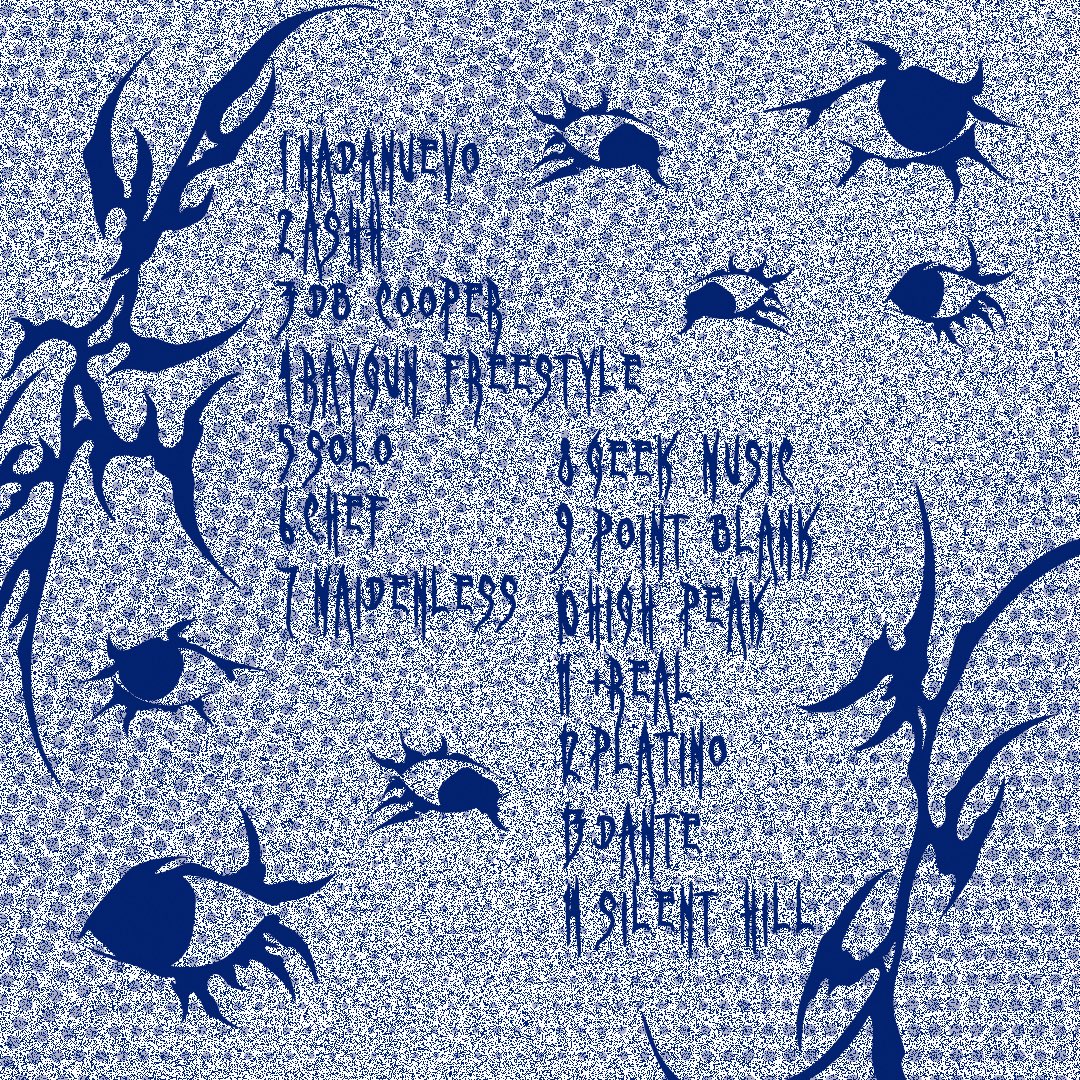 1 NADANUEVO
2 ASHH
3 DB COOPER
4 RAYGUN FREESTYLE
5 SOLO
6 CHEF
7 MAIDENLESS
8 GEEK MUSIC
9 POINT BLANK
10 HIGH PEAK
11 +REAL
12 PLATINO
13 DANTE
14 SILENT HILL